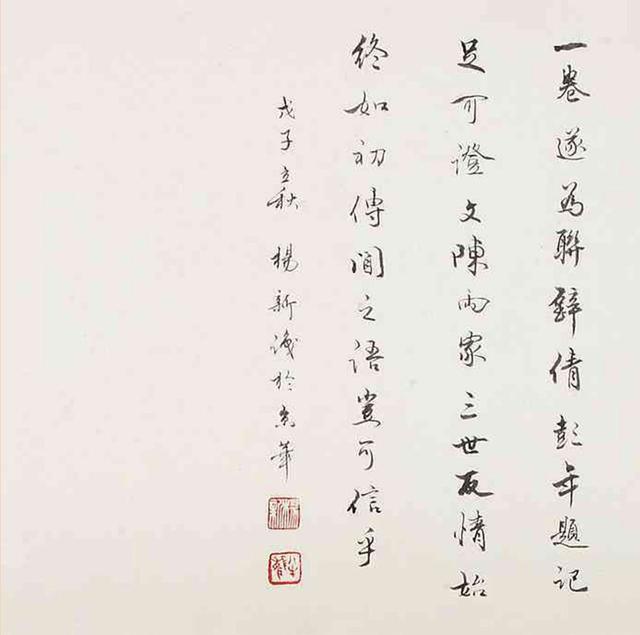 一卷遂為聯辭倩彭年題記
足可證文陳兩家三世友情始
終如初傳聞之語豈可信乎
戊子立秋 楊新識於京華